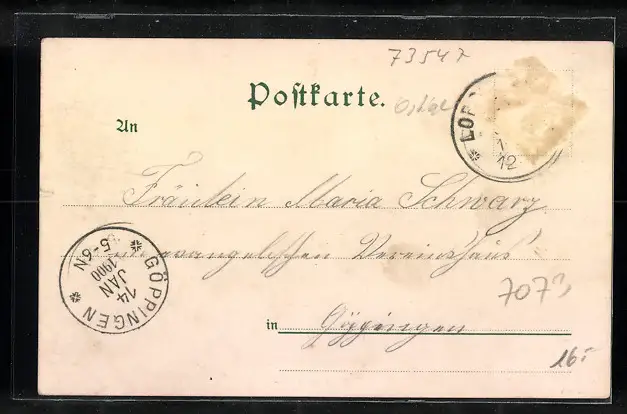 73547
Postkarte.
An
LOR
1
12
Fräulein Maria Schwarz
evangelischen Vereinshaus
GÖPPINGEN
14
JAN
1900
5-6N
7073
in Göppingen
16.-